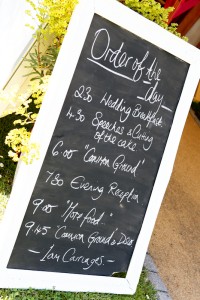 Order of the
day
2.30 Wedding Breakfast
4.30 Speeches & Cutting
of the cake
6.00 'Common Ground'
7.30 Evening Reception
9.00 'More food..'
9.45 'Common Ground & Disco
- 1am Carriages -